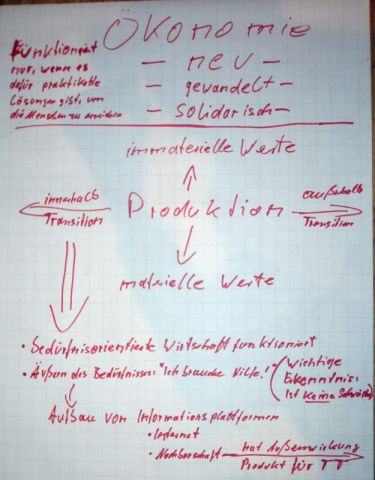 Ökonomie
Funktioniert
nur, wenn es
dafür praktikable
Lösungen gibt, um
die Menschen zu erreichen
- neu -
- gewandelt -
- solidarisch -
immaterielle Werte
innerhalb
Transition
Produktion
außerhalb
Transition
materielle Werte
• Bedürfnisorientierte Wirtschaft funktioniert
• Äußern des Bedürfnisses: "Ich brauche Hilfe!"
(Wichtige
Erkenntnis:
Ist keine Schwäche)
Aufbau von Informationsplattformen
• Internet
• Nachbarschaft
hat Außenwirkung
Produkt für TT